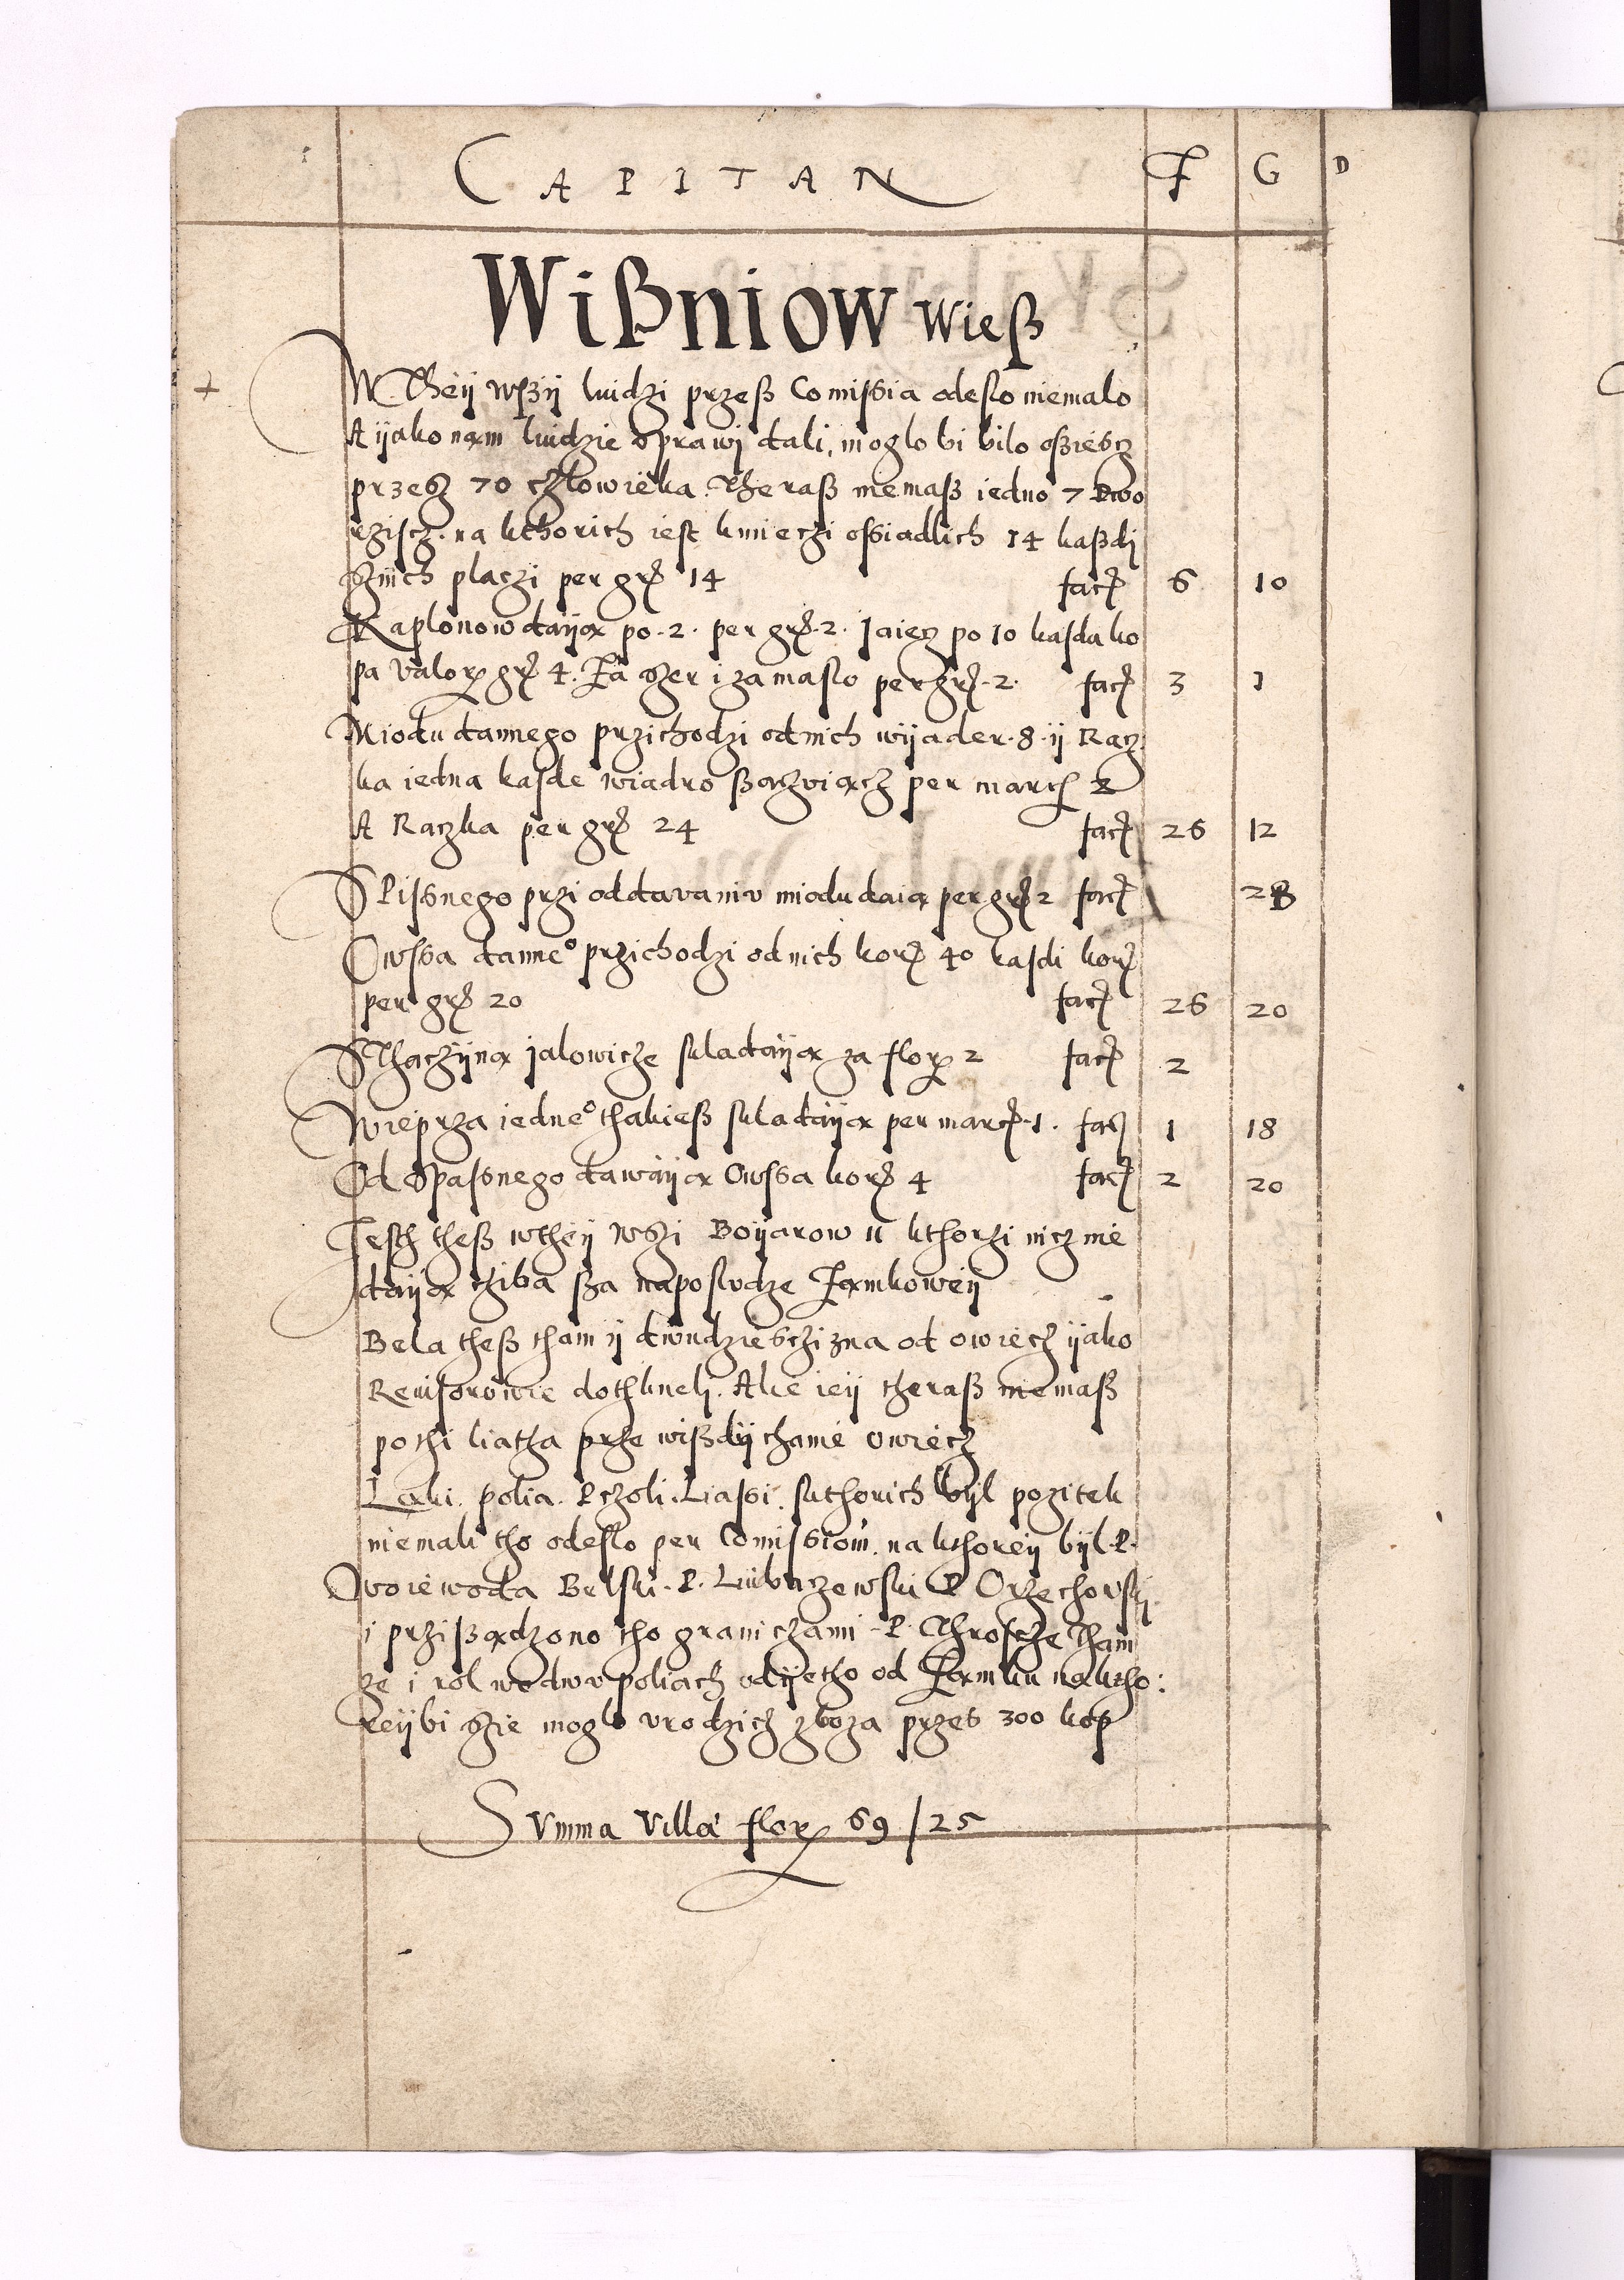 CAPITAN F G D
Wißniow wieß
W Theÿ wßÿ ludzi przeß Comissia odeslo niemalo
A ÿako nam ludzie sprawi dali, moglo bi bilo ossiescz
przesz 70 człowieka. Theraß niemaß iedno 7 Dwo
rziscz. na kthorich iest kmieczi ossiadlich 14 kaßdi
sznich placzi per grͦ 14 facͭ 6 10
Kaplonow daÿą po .2. per grͦ .2. Jaiecz po 10 kasda ko
pa valorͤ grͦ 4. Za Szer i za maslo per grͦ .2. facͭ 3 1
Miodu dannego przichodzi od nich wÿader .8. ÿ Racz
ka iedna kasde wiadro ßaczviącz per marcͭ 2
A Raczka per grͦ 24 facͭ 26 12
S Pissnego przi oddavaniv miodu daią per grͦ 2 facͭ 28
Owssa danneᵒ przichodzi od nich korͭ 40 kasdi korͭ
per grͦ 20 facͭ 26 20
SThaczÿną jalowicze skladaÿą za florͤ 2 facͭ 2
Wieprza iedneᵒ thakieß skladaÿą per marcͭ .1. facͭ 1 18
Od Spasnego dawaÿą Owssa korͭ 4 facͭ 2 20
Jesth theß wtheÿ wszi Boÿarow 11 kthorzi nicz nie
daÿą chiba sza na posludze Zamkoweÿ
Bela theß tham ÿ dwudziesczizna od owiecz ÿako
Reuisorowie dothkneli. Ale ieÿ theraß niemaß
po thi liatha prze wißdÿchanie owiecz
Ląki. polia. Pczoli. Liassi. skthorich bÿl pozitek
niemali tho odeslo per Comissiom. na kthoreÿ bÿl .P.
Woiewoda Belski .P. Liubaczewski P Orzechovski
i przißądzono tho graniczami .P. Throscze Tham
ze i rol wedwv poliach odÿetho od Zamku na ktho:
reÿ bi szie moglo vrodzicz zboza przes 300 kop
Svmma Villæ florͤ 69 / 25